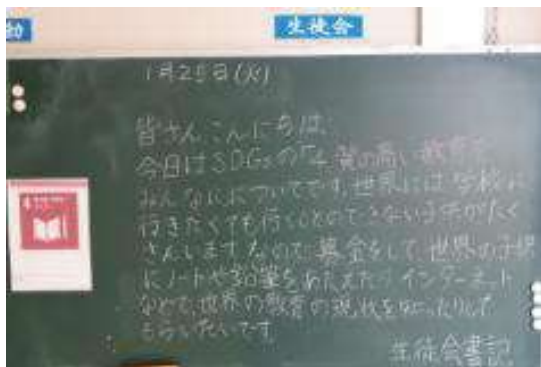 生徒会
1月25日(火)
皆さんこんにちは。
今日はSDGsの「4 質の高い教育を
みんなに」についてです。世界には学校に
行きたくても行くことのできない子供がたく
さんいます。なので、募金をして、世界の子供
にノートや鉛筆をあたえたり、インターネット
などで、世界の教育の現状を知ったりして
もらいたいです。
生徒会書記
4